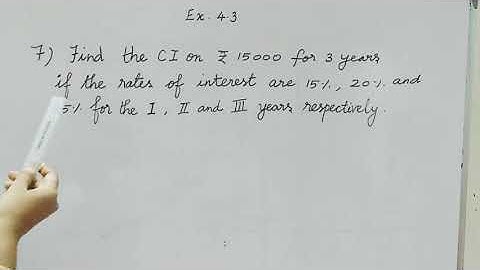 Ex. 4.3
7) Find the CI on ₹ 15000 for 3 years
if the rates of interest are 15%, 20% and
5% for the I, II and III years respectively.